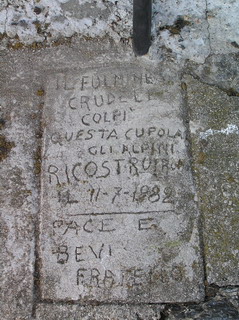 IL FULMINE
CRUDELE
COLPÌ
QUESTA CUPOLA
GLI ALPINI
RICOSTRUIRON
IL 11-7-1982
PACE E
BEVI
FRATELLO